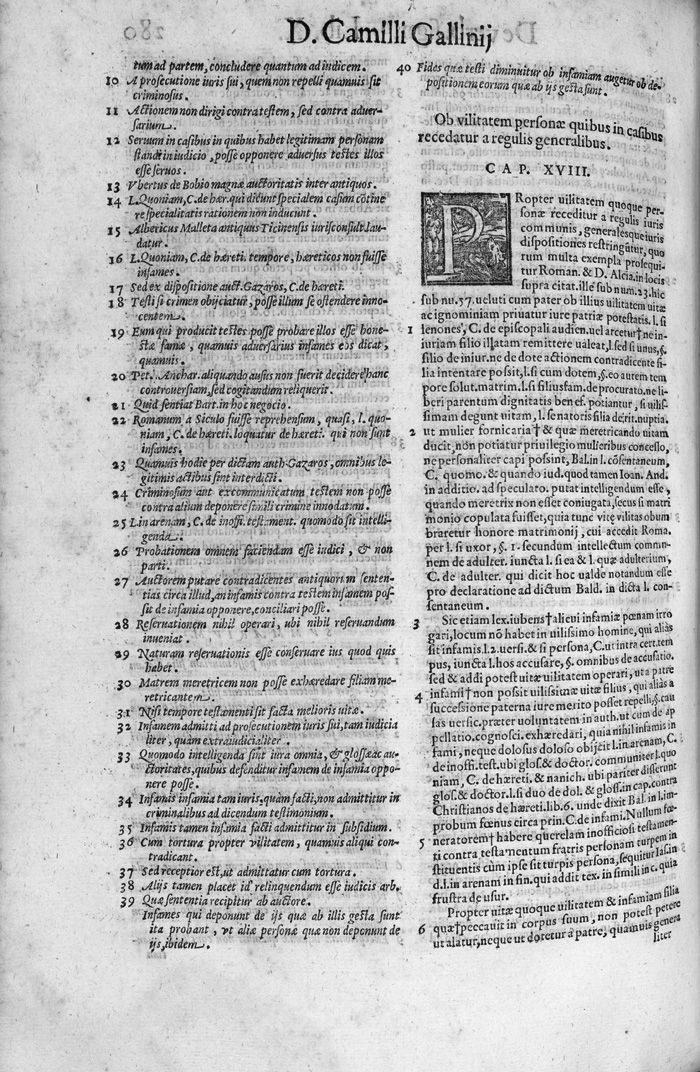 D. Camilli Gallinij
tum ad partem, concludere quantum ad indicem.
10 A prosecutione iuris sui, quem non repelli quamuis sit
criminosus.
11 Actionem non dirigi contra testem, sed contra aduer-
sarium.
12 Seruum in casibus in quibus habet legitimam personam
standi in iudicio, posse opponere aduersus testes illos
esse seruos.
13 Vbertus de Bobio magnæ auctoritatis inter antiquos.
14 L. Quoniam, C. de hær. qui dicunt specialem casum cōtine
re specialitatis rationem non inducunt.
15 Albericus Malleta antiquus Ticinensis iurisconsult. lau-
datur.
16 L. Quoniam, C. de hæreti. tempore, hæreticos non fuisse
infames.
17 Sed ex dispositione auct. Gazaros, C. de hæreti.
18 Testi si crimen obijciatur, posse illum se ostendere inno-
centem.
19 Eum qui producit testes posse probare illos esse hone-
stæ famæ, quamuis aduersarius infames eos dicat,
quamuis.
20 Pet. Anchar. aliquando ausus non fuerit decidere hanc
controuersiam, sed cogitandum reliquerit.
21 Quid sentiat Bart. in hoc negocio.
22 Romanum a Siculo fuisse reprehensum, quasi, l. quo-
niam, C. de hæreti. loquatur de hæreti. qui non sunt
infames.
23 Quamuis hodie per dictam auth. Gazaros, omnibus le-
gitimis actibus sint interdicti.
24 Criminosum aut excommunicatum testem non posse
contra alium deponere simili crimine innodatum.
25 L. in arenam, C. de inoffi. testament. quomodo sit intelli-
genda.
26 Probationem omnem faciendam esse iudici, & non
parti.
27 Auctorem putare contradicentes antiquorum senten-
tias circa illud, an infamis contra testem infamem pos-
sit de infamia opponere, conciliari posse.
28 Reseruationem nihil operari, ubi nihil reseruandum
inueniat.
29 Naturam reseruationis esse conseruare ius quod quis
habet.
30 Matrem meretricem non posse exhæredare filiam me-
retricantem.
31 Nisi tempore testamenti sit facta melioris uitæ.
32 Infamem admitti ad prosecutionem iuris sui, tam iudicia
liter, quàm extraiudicialiter.
33 Quomodo intelligenda sunt iura omnia, & glossæ ac au-
ctoritates, quibus defenditur infamem de infamia oppo-
nere posse.
34 Infamis infamia tam iuris, quam facti, non admittitur in
criminalibus ad dicendum testimonium.
35 Infamis tamen infamia facti admittitur in subsidium.
36 Cum tortura propter vilitatem, quamuis aliqui con-
tradicant.
37 Sed receptior est, ut admittatur cum tortura.
38 Alijs tamen placet id relinquendum esse iudicis arb.
39 Quæ sententia recipitur ab auctore.
Infames qui deponunt de ijs quæ ab illis gesta sunt
ita probant, vt aliæ personæ quæ non deponunt de
ijs, ibidem.
40 Fides quæ testi diminuitur ob infamiam augetur ob de-
positionem eorum quæ ab ijs gesta sunt.
Ob vilitatem personæ quibus in casibus
recedatur a regulis generalibus.
CAP. XVIII.
PRopter uilitatem quoque per-
sonæ receditur a regulis iuris
communis, generalesque iuris
dispositiones restringūtur, quo
rum multa exempla prosequi-
tur Roman. & D. Alcia. in locis
supra citat. ille sub num. 23. hic
sub nu. 57. ueluti cum pater ob illius vilitatem uitæ
ac ignominiam priuatur iure patriæ potestatis. l. si
1 lenones, C. de episcopali audien. uel arcetur† ne in-
iuriam filio illatam remittere ualeat, l. sed si unus, §.
filio de iniur. ne de dote actionem contradicente fi-
lia intentare possit, l. si cum dotem, §. eo autem tem
pore solut. matrim. l. si filiusfam. de procurato. ne li-
beri parentum dignitatis benef. potiantur, si uilis-
simam degunt uitam, l. senatoris filia de rit. nuptia.
2 ut mulier fornicaria† & quæ meretricando uitam
ducit, non potiatur priuilegio mulieribus concesso,
ne personaliter capi possint, Bal. in l. cōsentaneum,
C. quomo. & quando iud. quod tamen Ioan. And.
in additio. ad speculato. putat intelligendum esse,
quando meretrix non esset coniugata, secus si matri
monio copulata fuisset, quia tunc vitę vilitas obum
braretur honore matrimonij, cui accedit Roma.
per l. si uxor, §. 1. secundum intellectum commu-
nem de adulter. iuncta l. si ea & l. quæ adulterium,
C. de adulter. qui dicit hoc ualde notandum esse
pro declaratione ad dictum Bald. in dicta l. con-
sentaneum.
3 Sic etiam lex iubens† alieni infamiæ pœnam irro
gari, locum nō habet in uilissimo homine, qui alias
sit infamis. l. 2. uersi. & si persona, C. ut intra cert. tem
pus, iuncta l. hos accusare, §. omnibus de accusatio.
sed & addi potest uitæ uilitatem operari, ut a patre
4 infansi† non possit uilissimæ uitæ filius, qui alias a
successione paterna iure merito posset repelli, §. cau
sas uersic. præter uoluntatem in auth. ut cum de ap
pellatio. cognosci. exhæredari, quia nihil infamis in
fami, neque dolosus doloso obijcit l. in arenam, C.
de inoffi. test. ubi glos. & doctor. communiter l. quo
niam, C. de hæreti. & nanich. ubi pariter disserunt
glos. & doctor. l. si duo de dol. & glos. in cap. contra
Christianos de hæreti. lib. 6. unde dixit Bal. in l. im-
probum fœnus circa prin. C. de infami. Nullum fœ-
5 neratorem† habere querelam inofficiosi testamen-
ti contra testamentum fratris personam turpem in
stituentis cùm ipse sit turpis persona, sequitur Ias. in
d. l. in arenam in fin. qui addit tex. in simili inc. quia
frustra de usur.
Propter uitæ quoque uilitatem & infamiam filia
6 quæ† peccauit in corpus suum, non potest petere
ut alatur, neque ut dotetur a patre, quamuis genera
liter